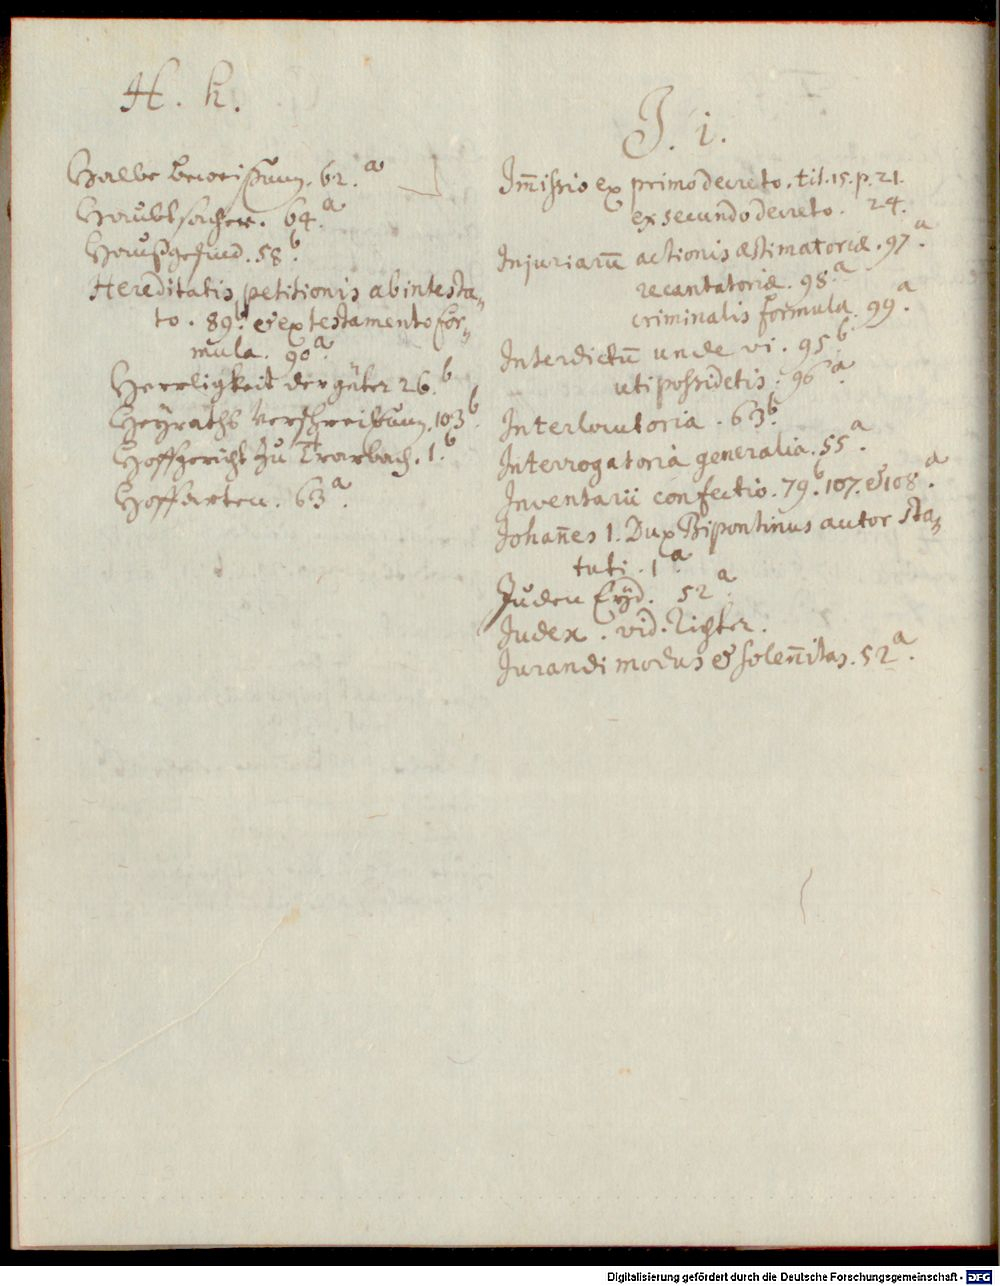 H. h.
Halbe beweissung. 62.a
Haubtsacher. 64.a
Haußgesind. 58.b
Hereditatis petitionis ab intesta=
to. 89.b & ex testamento for=
mula. 90.a
Herrligkeit der güter 26.b
Heyraths Verschreibung. 103.b
Hoffgericht zu Trarbach. 1.b
Hoffarten. 63.a
I. i.
Im̄issio ex primo decreto. tit. 15. p. 21.
ex secundo decreto. 24.
Injuriarū actionis æstimatoriæ. 97.a
recantatoriæ. 98.a
criminalis formula. 99.a
Interdictū unde vi. 95.b
uti possidetis. 96.a
Interlocutoria. 63.b
Interrogatoria generalia. 55.a
Inventarii confectio. 79.b 107. & 108.a
Johan̄es 1. Dux Bipontinus autor sta=
tuti. 1.a
Juden Eyd. 52.a
Judex. vid. Richter.
Jurandi modus & solen̄itas. 52.a
Digitalisierung gefördert durch die Deutsche Forschungsgemeinschaft - DFG